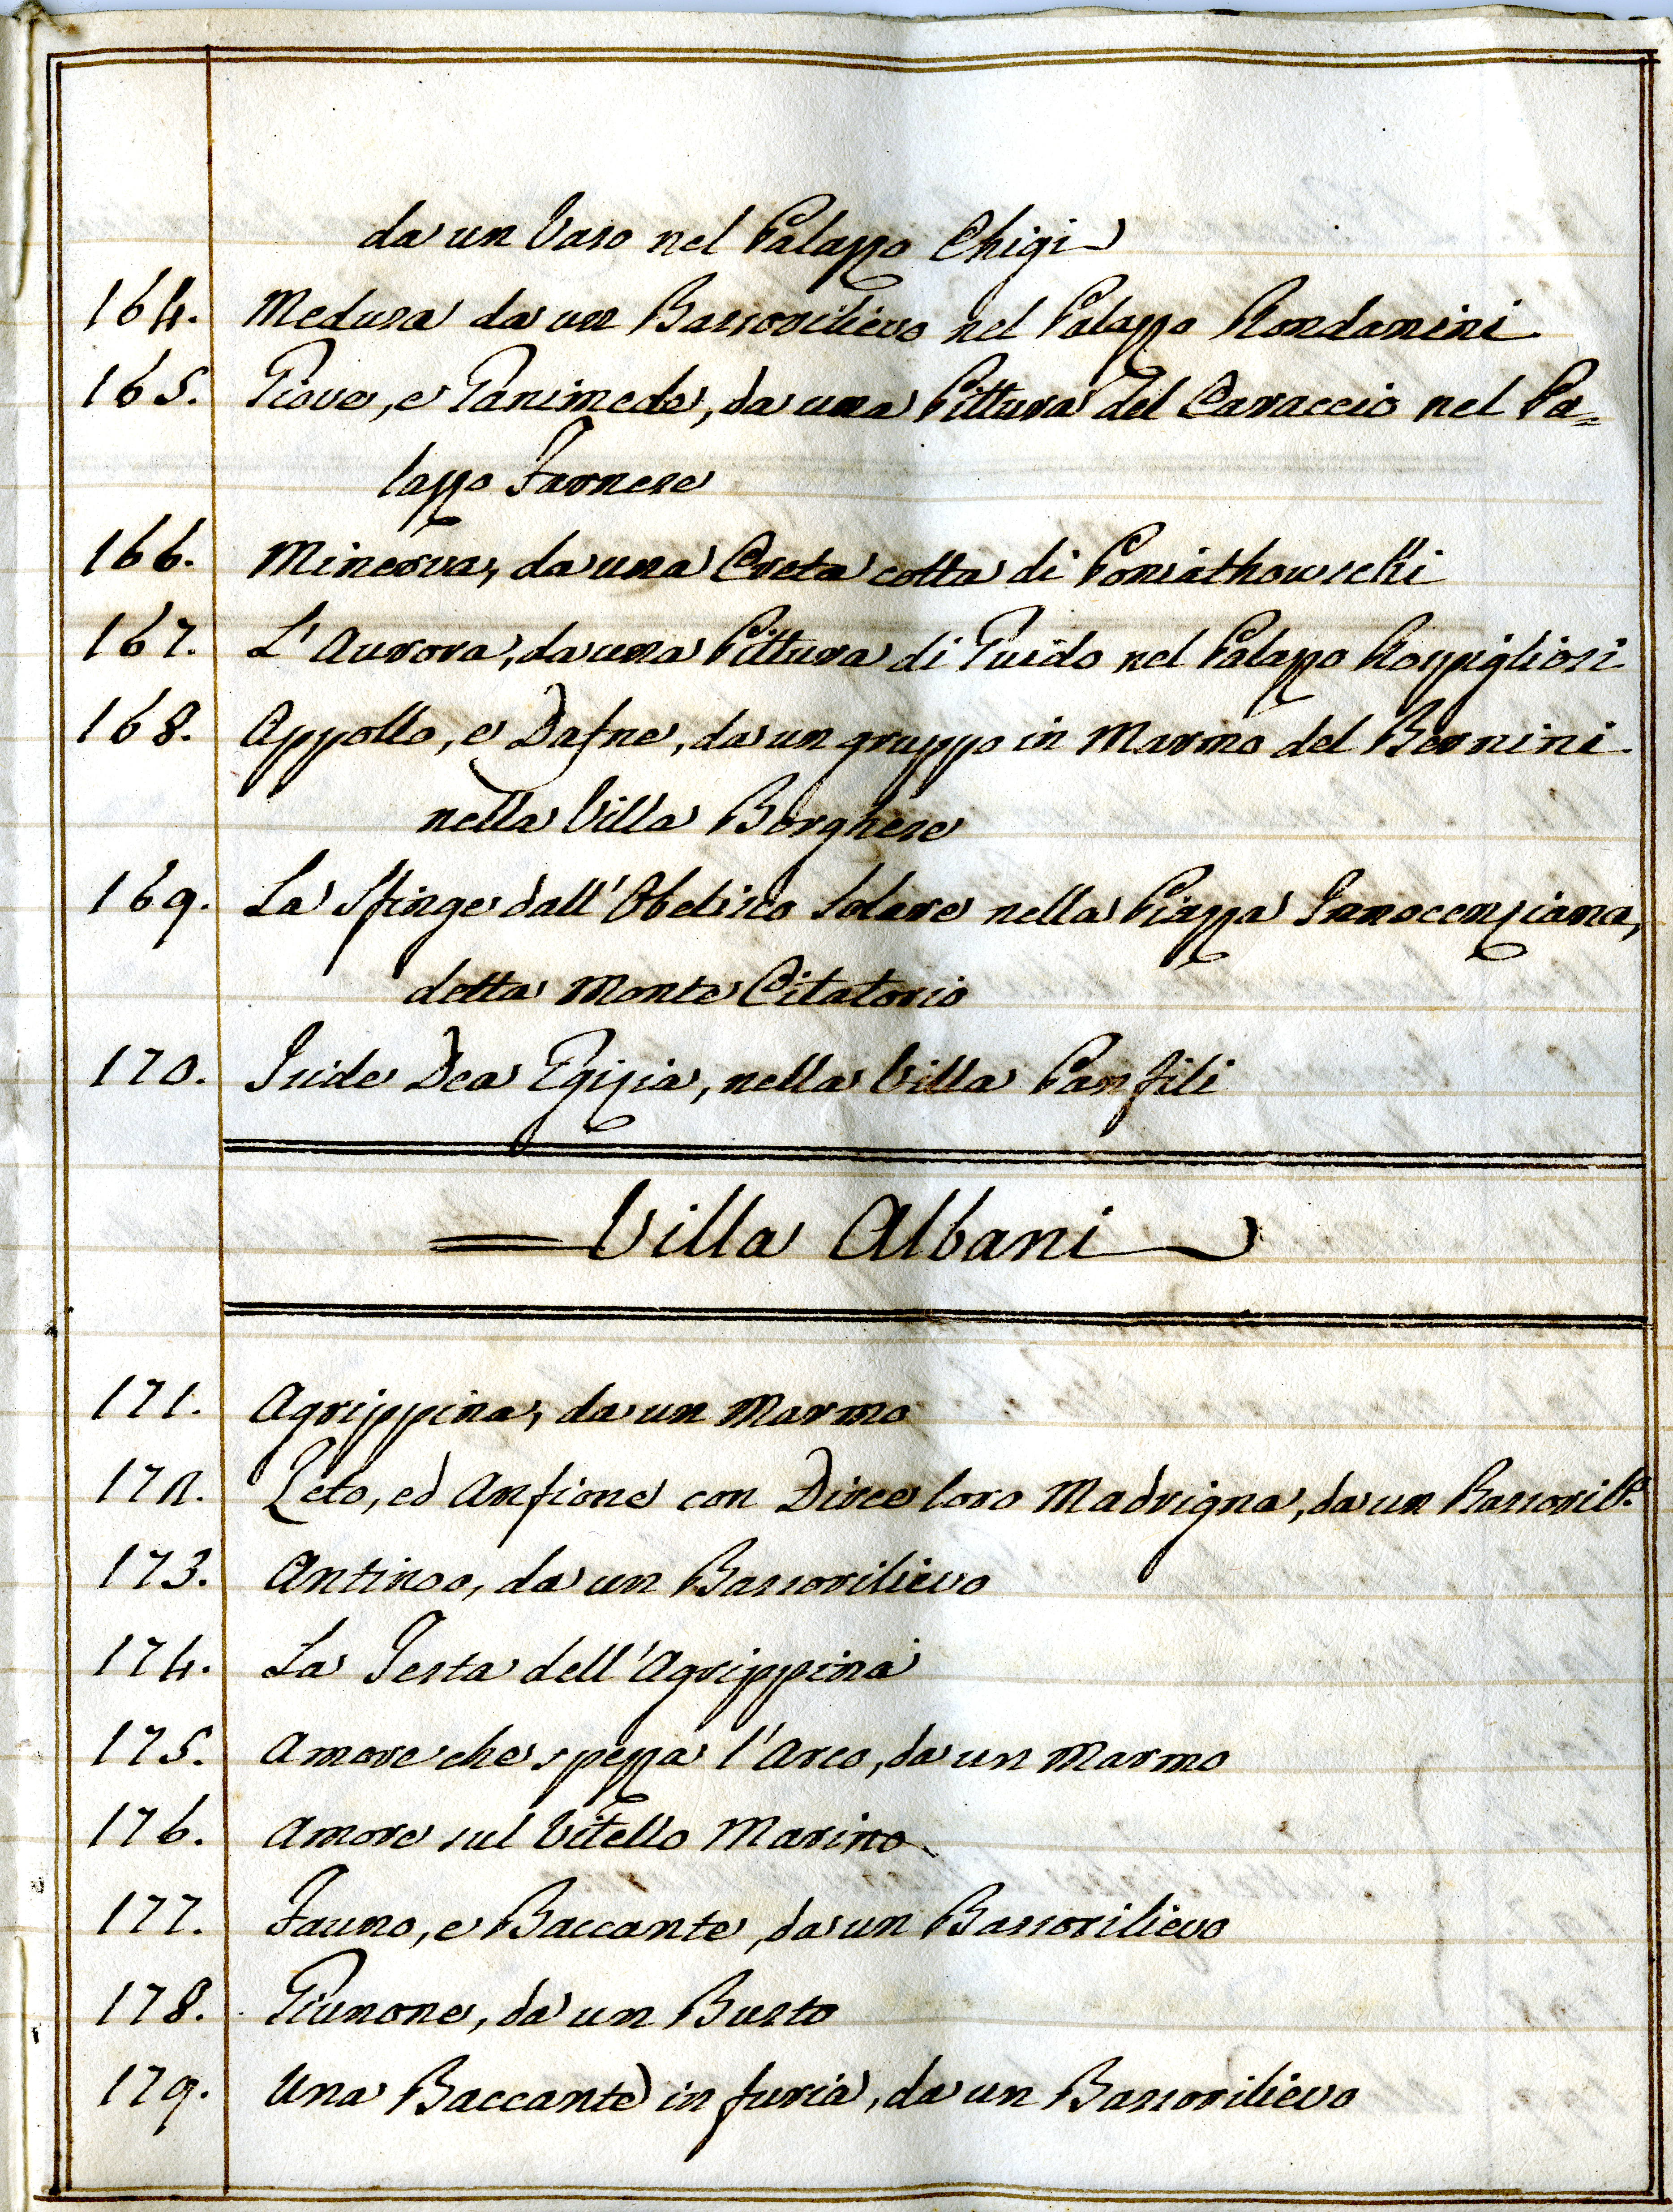 da un Vaso nel Palazzo Chigi
164. Medusa da un Bassorilievo nel Palazzo Rondanini
165. Giove, e Ganimede, da una Pittura del Caraccio nel Pa=
lazzo Farnese
166. Minerva, da una Creta cotta di Poniathowschi
167. L'Aurora, da una Pittura di Guido nel Palazzo Rospigliosi
168. Appollo, e Dafne, da un gruppo in Marmo del Bernini
nella Villa Borghese
169. La Sfinge dall'Obelisco Solare nella Piazza Innocenziana,
detta Monte Citatorio
170. Iside Dea Egizia, nella Villa Panfili
Villa Albani
171. Agrippina, da un Marmo
172. Zeto, ed Anfione con Dirce loro Madrigna, da un Bassoril.º
173. Antinoo, da un Bassorilievo
174. La Testa dell'Agrippina
175. Amore che spezza l'Arco, da un Marmo
176. Amore sul Vitello Marino
177. Fauno, e Baccante, da un Bassorilievo
178. Giunone, da un Busto
179. Una Baccante in furia, da un Bassorilievo